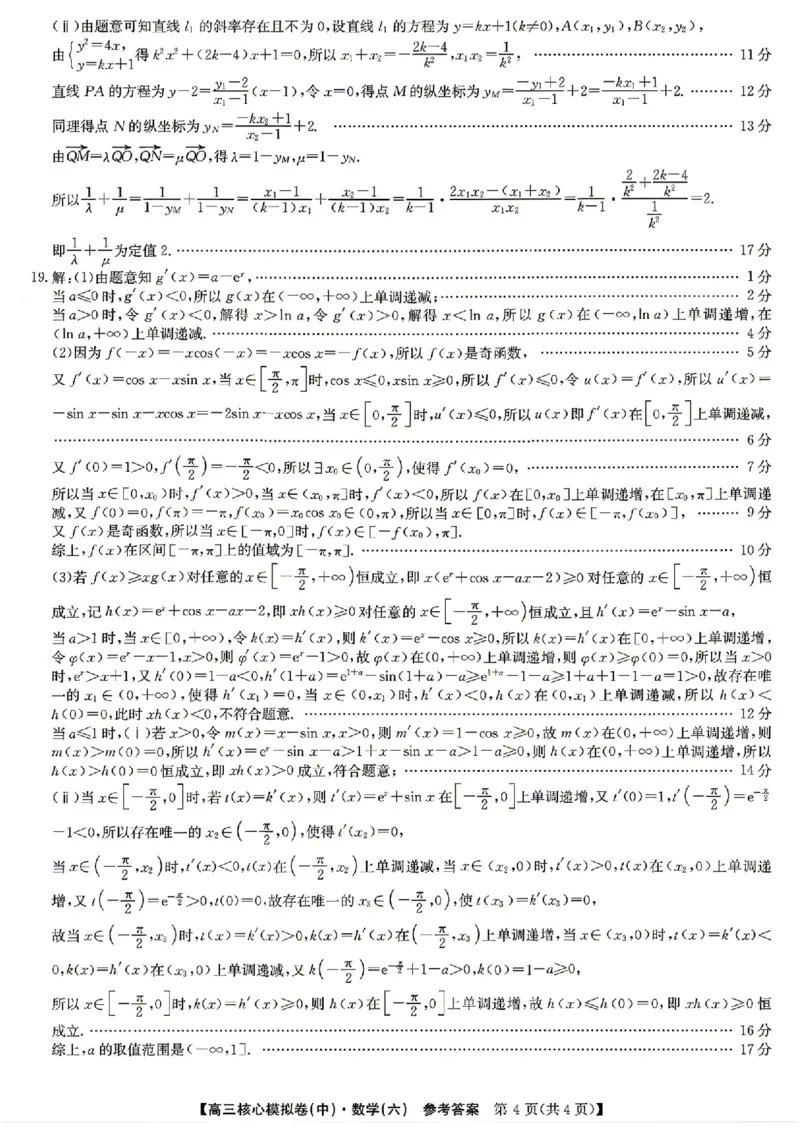 (ⅱ)由题意可知直线 l₁ 的斜率存在且不为 0,设直线 l₁ 的方程为 y=kx+1(k≠0),A(x₁,y₁),B(x₂,y₂),
由{y²=4x, y=kx+1 得 k²x²+(2k-4)x+1=0,所以 x₁+x₂=-(2k-4)/k²,x₁x₂=1/k², …… 11 分
直线 PA 的方程为 y-2=(y₁-2)/(x₁-1)(x-1),令 x=0,得点 M 的纵坐标为 y_M=(-y₁+2)/(x₁-1)+2=(-kx₁+1)/(x₁-1)+2. …… 12 分
同理得点 N 的纵坐标为 y_N=(-kx₂+1)/(x₂-1)+2. …… 13 分
由QM→=λQO→,QN→=μQO→,得 λ=1-y_M,μ=1-y_N.
所以1/λ+1/μ=1/(1-y_M)+1/(1-y_N)=(x₁-1)/((k-1)x₁)+(x₂-1)/((k-1)x₂)=1/(k-1)·(2x₁x₂-(x₁+x₂))/(x₁x₂)=1/(k-1)·(2/k²+(2k-4)/k²)/(1/k²)=2.
即1/λ+1/μ为定值 2. …… 17 分
19.解:(1)由题意知 g′(x)=a-eˣ, …… 1 分
当 a≤0 时,g′(x)<0,所以 g(x)在(-∞,+∞)上单调递减; …… 2 分
当 a>0 时,令 g′(x)<0,解得 x>ln a,令 g′(x)>0,解得 x<ln a,所以 g(x)在(-∞,ln a)上单调递增,在
(ln a,+∞)上单调递减. …… 4 分
(2)因为 f(-x)=-xcos(-x)=-xcos x=-f(x),所以 f(x)是奇函数, …… 5 分
又 f′(x)=cos x-xsin x,当 x∈[π/2,π]时,cos x≤0,xsin x≥0,所以 f′(x)≤0,令 u(x)=f′(x),所以 u′(x)=
-sin x-sin x-xcos x=-2sin x-xcos x,当 x∈[0,π/2]时,u′(x)≤0,所以 u(x)即 f′(x)在[0,π/2]上单调递减,
…… 6 分
又 f′(0)=1>0,f′(π/2)=-π/2<0,所以∃x₀∈(0,π/2),使得 f′(x₀)=0, …… 7 分
所以当 x∈[0,x₀)时,f′(x)>0,当 x∈(x₀,π]时,f′(x)<0,所以 f(x)在[0,x₀]上单调递增,在[x₀,π]上单调递
减,又 f(0)=0,f(π)=-π,f(x₀)=x₀cos x₀∈(0,π),所以当 x∈[0,π]时,f(x)∈[-π,f(x₀)], …… 9 分
又 f(x)是奇函数,所以当 x∈[-π,0]时,f(x)∈[-f(x₀),π].
综上,f(x)在区间[-π,π]上的值域为[-π,π]. …… 10 分
(3)若 f(x)≥xg(x)对任意的 x∈[-π/2,+∞)恒成立,即 x(eˣ+cos x-ax-2)≥0 对任意的 x∈[-π/2,+∞)恒
成立,记 h(x)=eˣ+cos x-ax-2,即 xh(x)≥0 对任意的 x∈[-π/2,+∞)恒成立,且 h′(x)=eˣ-sin x-a,
当 a>1 时,当 x∈[0,+∞),令 k(x)=h′(x),则 k′(x)=eˣ-cos x≥0,所以 k(x)=h′(x)在[0,+∞)上单调递增,
令 φ(x)=eˣ-x-1,x>0,则 φ′(x)=eˣ-1>0,故 φ(x)在(0,+∞)上单调递增,则 φ(x)≥φ(0)=0,所以当 x>0
时,eˣ>x+1,又 h′(0)=1-a<0,h′(1+a)=e¹⁺ᵃ-sin(1+a)-a≥e¹⁺ᵃ-1-a≥1+a+1-1-a=1>0,故存在唯
一的 x₁∈(0,+∞),使得 h′(x₁)=0,当 x∈(0,x₁)时,h′(x)<0,h(x)在(0,x₁)上单调递减,所以 h(x)<
h(0)=0,此时 xh(x)<0,不符合题意. …… 12 分
当 a≤1 时,(ⅰ)若 x>0,令 m(x)=x-sin x,x>0,则 m′(x)=1-cos x≥0,故 m(x)在(0,+∞)上单调递增,则
m(x)>m(0)=0,所以 h′(x)=eˣ-sin x-a>1+x-sin x-a>1-a≥0,则 h(x)在(0,+∞)上单调递增,所以
h(x)>h(0)=0 恒成立,即 xh(x)>0 成立,符合题意; …… 14 分
(ⅱ)当 x∈[-π/2,0]时,若 t(x)=k′(x),则 t′(x)=eˣ+sin x 在[-π/2,0]上单调递增,又 t′(0)=1,t′(-π/2)=e^(-π/2)
-1<0,所以存在唯一的 x₂∈(-π/2,0),使得 t′(x₂)=0,
当 x∈(-π/2,x₂)时,t′(x)<0,t(x)在(-π/2,x₂)上单调递减,当 x∈(x₂,0)时,t′(x)>0,t(x)在(x₂,0)上单调递
增,又 t(-π/2)=e^(-π/2)>0,t(0)=0,故存在唯一的 x₃∈(-π/2,0),使 t(x₃)=k′(x₃)=0,
故当 x∈(-π/2,x₃)时,t(x)=k′(x)>0,k(x)=h′(x)在(-π/2,x₃)上单调递增,当 x∈(x₃,0)时,t(x)=k′(x)<
0,k(x)=h′(x)在(x₃,0)上单调递减,又 k(-π/2)=e^(-π/2)+1-a>0,k(0)=1-a≥0,
所以 x∈[-π/2,0]时,k(x)=h′(x)≥0,则 h(x)在[-π/2,0]上单调递增,故 h(x)≤h(0)=0,即 xh(x)≥0 恒
成立. …… 16 分
综上,a 的取值范围是(-∞,1]. …… 17 分
【高三核心模拟卷(中)·数学(六) 参考答案 第 4 页(共 4 页)】